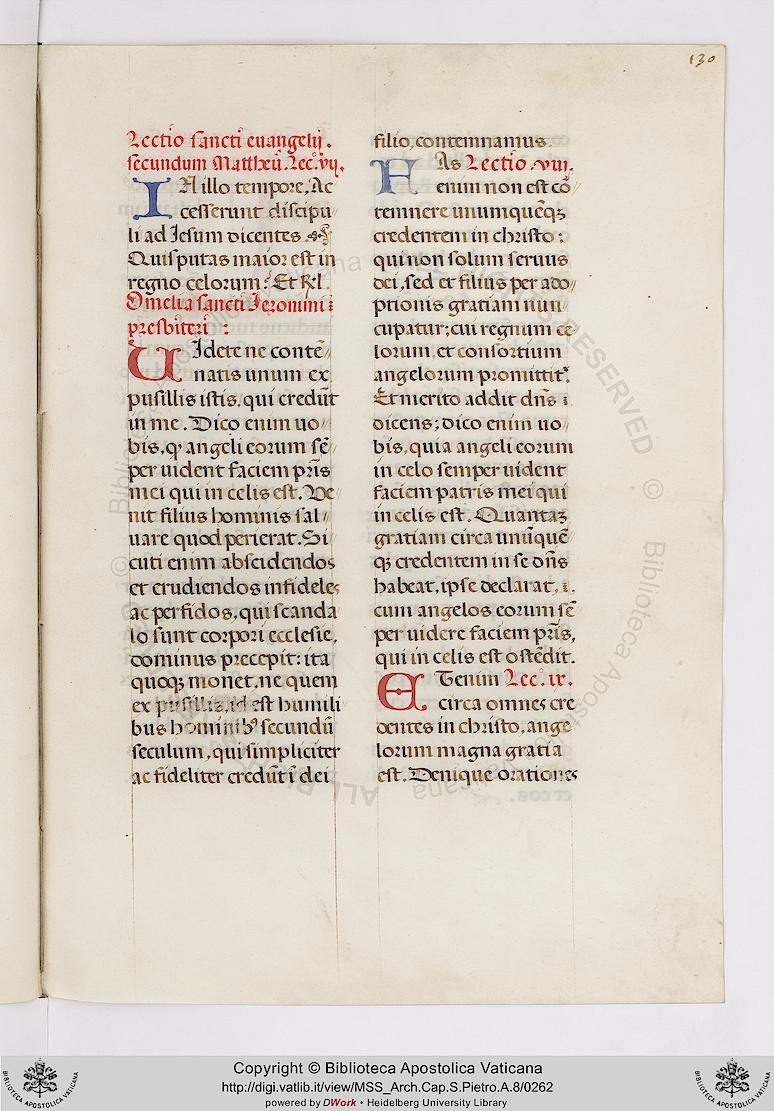 130
Lectio sancti euangelij.
secundum Mattheū. Lec. vij.
IN illo tempore, Ac
cesserunt discipu
li ad Iesum dicentes.
Quis putas maior est in
regno celorum? Et R. l.
Omelia sancti Ieronimi
presbiteri:
Uidete ne contē
natis unum ex
pusillis istis, qui credūt
in me. Dico enim uo
bis, qꝫ angeli eorum sē
per uident faciem pr̄is
mei qui in celis est. Ve
nit filius hominis sal
uare quod perierat. Si
cuti enim abscidendos
et erudiendos infideles
ac perfidos, qui scanda
lo sunt corpori ecclesie,
dominus precepit: ita
quoqꝫ monet, ne quem
ex pusillis, id est humili
bus hominibꝰ secundū
seculum, qui simpliciter
ac fideliter credūt ī dei
filio, contemnamus.
FAs Lectio. viii.
enim non est cō
temnere unumquēqꝫ
credentem in christo:
qui non solum seruus
dei, sed et filius per ado
ptionis gratiam nun
cupatur; cui regnum ce
lorum, et consortium
angelorum promittitᷣ.
Et merito addit dn̄s
dicens; dico enim uo
bis, quia angeli eorum
in celo semper uident
faciem patris mei qui
in celis est. Quantaꝫ
gratiam circa unūquē
qꝫ credentem in se dn̄s
habeat, ipse declarat,
cum angelos eorum sē
per uidere faciem pr̄is,
qui in celis est ostēdit.
ETenim Lec. ix.
circa omnes cre
dentes in christo, ange
lorum magna gratia
est. Denique orationes
Copyright © Biblioteca Apostolica Vaticana
http://digi.vatlib.it/view/MSS_Arch.Cap.S.Pietro.A.8/0262
powered by DWork • Heidelberg University Library
BIBLIOTECA APOSTOLICA VATICANA
BIBLIOTECA APOSTOLICA VATICANA